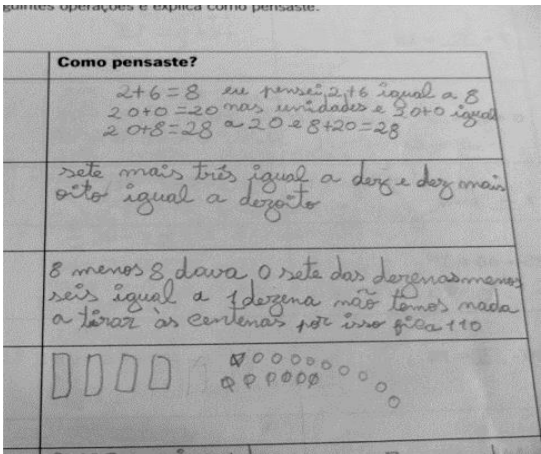 guintes operações e explica como pensaste.
Como pensaste?
2+6=8 eu pensei 2+6 igual a 8
20+0=20 nas unidades e 20+0 igual
20+8=28 a 20 e 8+20=28
sete mais três igual a dez e dez mais
oito igual a dezoito
8 menos 8 dava 0 sete das dezenas menos
seis igual a 1 dezena não temos nada
a tirar às centenas por isso fica 110